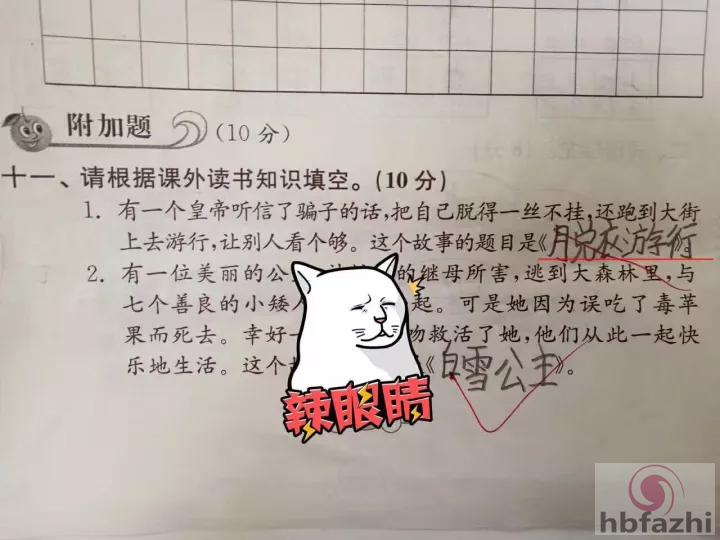 附加题 (10 分)
十一、请根据课外读书知识填空。(10 分)
1. 有一个皇帝听信了骗子的话,把自己脱得一丝不挂,还跑到大街
上去游行,让别人看个够。这个故事的题目是《脱衣游行》。
2. 有一位美丽的公 的继母所害,逃到大森林里,与
七个善良的小矮人 起。可是她因为误吃了毒苹
果而死去。幸好一 吻救活了她,他们从此一起快
乐地生活。这个 《白雪公主》。
辣眼睛
hbfazhi